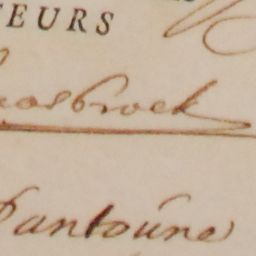 EURS
osbroek
Pantoúne